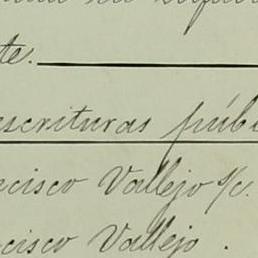 te.
escrituras públi
ncisco Vallejo s/c.
ncisco Vallejo.